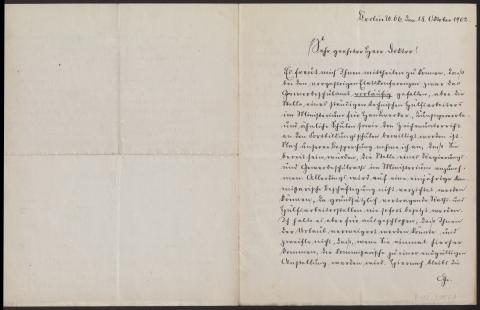 Berlin W. 66, den 18. Oktober 1902.
Sehr geehrter Herr Doktor!
Es freut mich Ihnen mittheilen zu können, daß
bei den vorgestrigen Etatskonferenzen zwar das
Gewerbeschulamt vorläufig gefallen, aber die
Stelle eines ständigen technischen Hülfsarbeiters
im Ministerium für Handwerker-, Kunstgewerbe-
und ähnliche Schulen sowie den Zeichenunterricht
an den Fortbildungsschulen bewilligt worden ist.
Nach unserer Besprechung nehme ich an, daß Sie
bereit sein würden, die Stelle eines Regierungs-
und Gewerbeschulraths im Ministerium anzuneh-
men. Allerdings wird auf eine einjährige kom-
missarische Beschäftigung nicht verzichtet werden
können, da grundsätzlich vortragende Raths- und
Hülfsarbeiterstellen nie sofort besetzt werden.
Ich halte es aber für ausgeschlossen, daß Ihnen
der Urlaub verweigert werden könnte und
zweifle nicht, daß, wenn Sie einmal hierher
kommen, die kommissarische zu einer endgültigen
Anstellung werden wird. Hiernach bleibt die